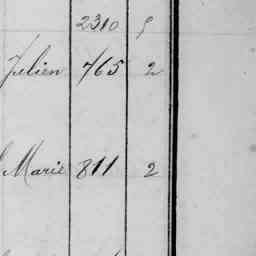 2310 5
Julien 765 2
Marie 811 2